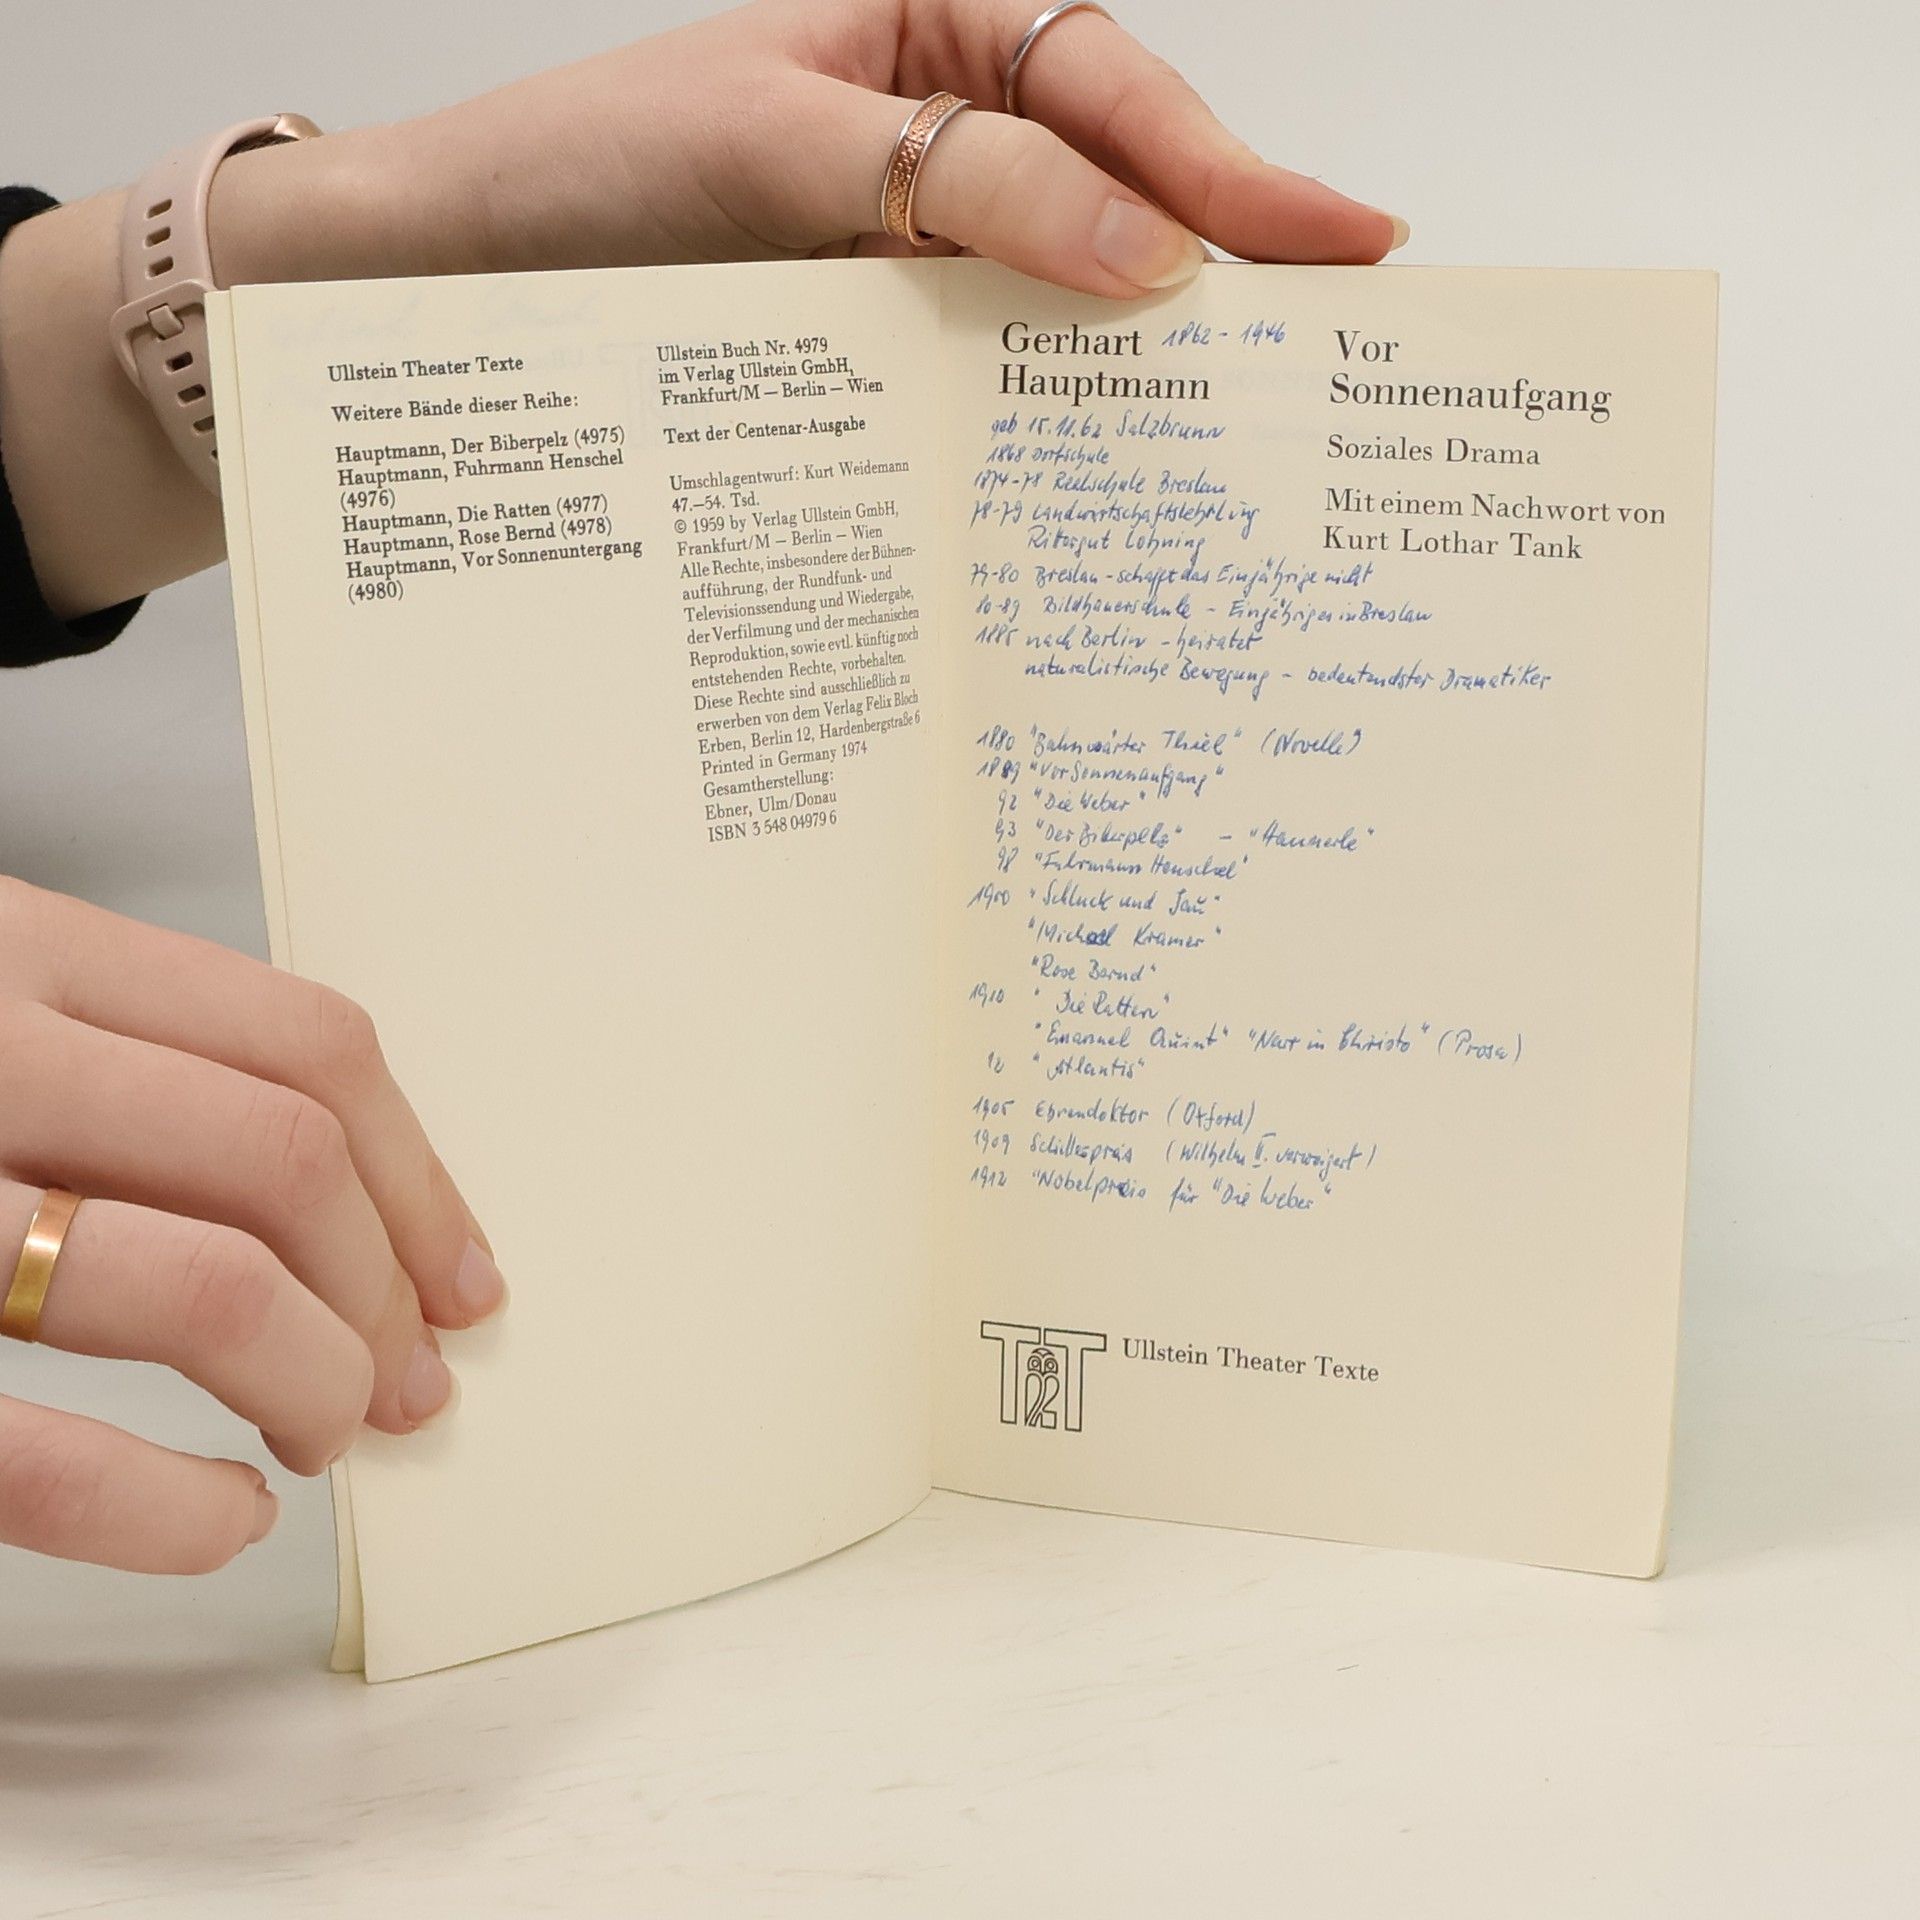 Ullstein Theater Texte
Weitere Bände dieser Reihe:
Hauptmann, Der Biberpelz (4975)
Hauptmann, Fuhrmann Henschel
(4976)
Hauptmann, Die Ratten (4977)
Hauptmann, Rose Bernd (4978)
Hauptmann, Vor Sonnenuntergang
(4980)
Ullstein Buch Nr. 4979
im Verlag Ullstein GmbH,
Frankfurt/M — Berlin — Wien
Text der Centenar-Ausgabe
Umschlagentwurf: Kurt Weidemann
47.—54. Tsd.
© 1959 by Verlag Ullstein GmbH,
Frankfurt/M — Berlin — Wien
Alle Rechte, insbesondere der Bühnen-
aufführung, der Rundfunk- und
Televisionssendung und Wiedergabe,
der Verfilmung und der mechanischen
Reproduktion, sowie evtl. künftig noch
entstehenden Rechte, vorbehalten.
Diese Rechte sind ausschließlich zu
erwerben von dem Verlag Felix Bloch
Erben, Berlin 12, Hardenbergstraße 6
Printed in Germany 1974
Gesamtherstellung:
Ebner, Ulm/Donau
ISBN 3 548 04979 6
Gerhart 1862 - 1946
Hauptmann
Vor
Sonnenaufgang
Soziales Drama
Mit einem Nachwort von
Kurt Lothar Tank
geb 15.11.62 Salzbrunn
1868 Dorfschule
1874-78 Realschule Breslau
78-79 Landwirtschaftslehrling
Rittergut Lohning
79-80 Breslau - schafft das Einjährige nicht
80-89 Bildhauerschule - Einjähriges in Breslau
1885 nach Berlin - heiratet
naturalistische Bewegung - bedeutendster Dramatiker
1880 "Bahnwärter Thiel" (Novelle)
1889 "Vor Sonnenaufgang"
92 "Die Weber"
93 "Der Biberpelz" - "Hannerle"
98 "Fuhrmann Henschel"
1900 "Schluck und Jau"
"Michael Kramer"
"Rose Bernd"
1910 "Die Ratten"
"Emanuel Quint" "Narr in Christo" (Prosa)
12 "Atlantis"
1905 Ehrendoktor (Oxford)
1909 Schillerpreis (Wilhelm II. verweigert)
1912 "Nobelpreis für "Die Weber"
TT Ullstein Theater Texte